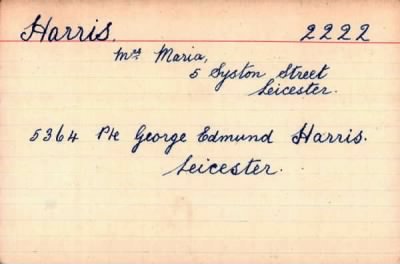 Harris. 2222
Mrs Maria,
5 Syston Street
Leicester.
5364 Pte George Edmund Harris.
Leicester.